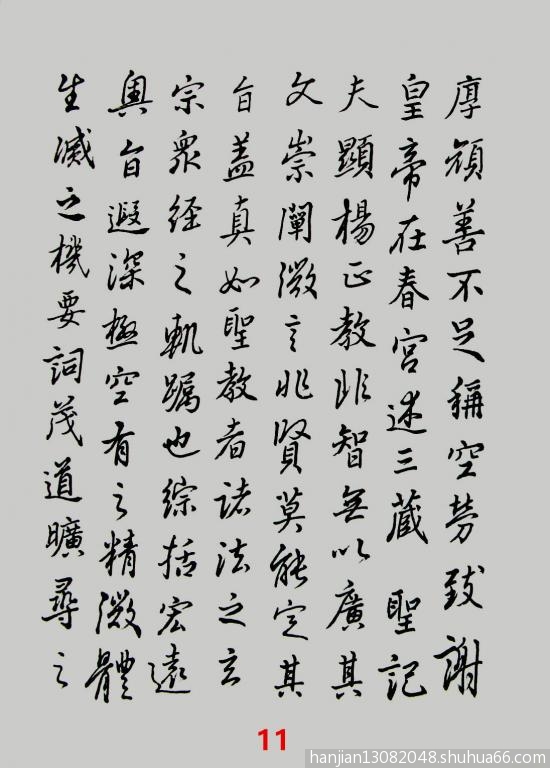 厚頽善不足稱空勞致謝
皇帝在春宮述三藏 聖記
夫顯楊正教非智無以廣其
文崇闡微言非賢莫能定其
旨蓋真如聖教者諸法之玄
宗衆經之軌躅也綜括宏遠
奧旨遐深極空有之精微體
生滅之機要詞茂道曠尋之
11
hanjian13082048.shuhua66.com